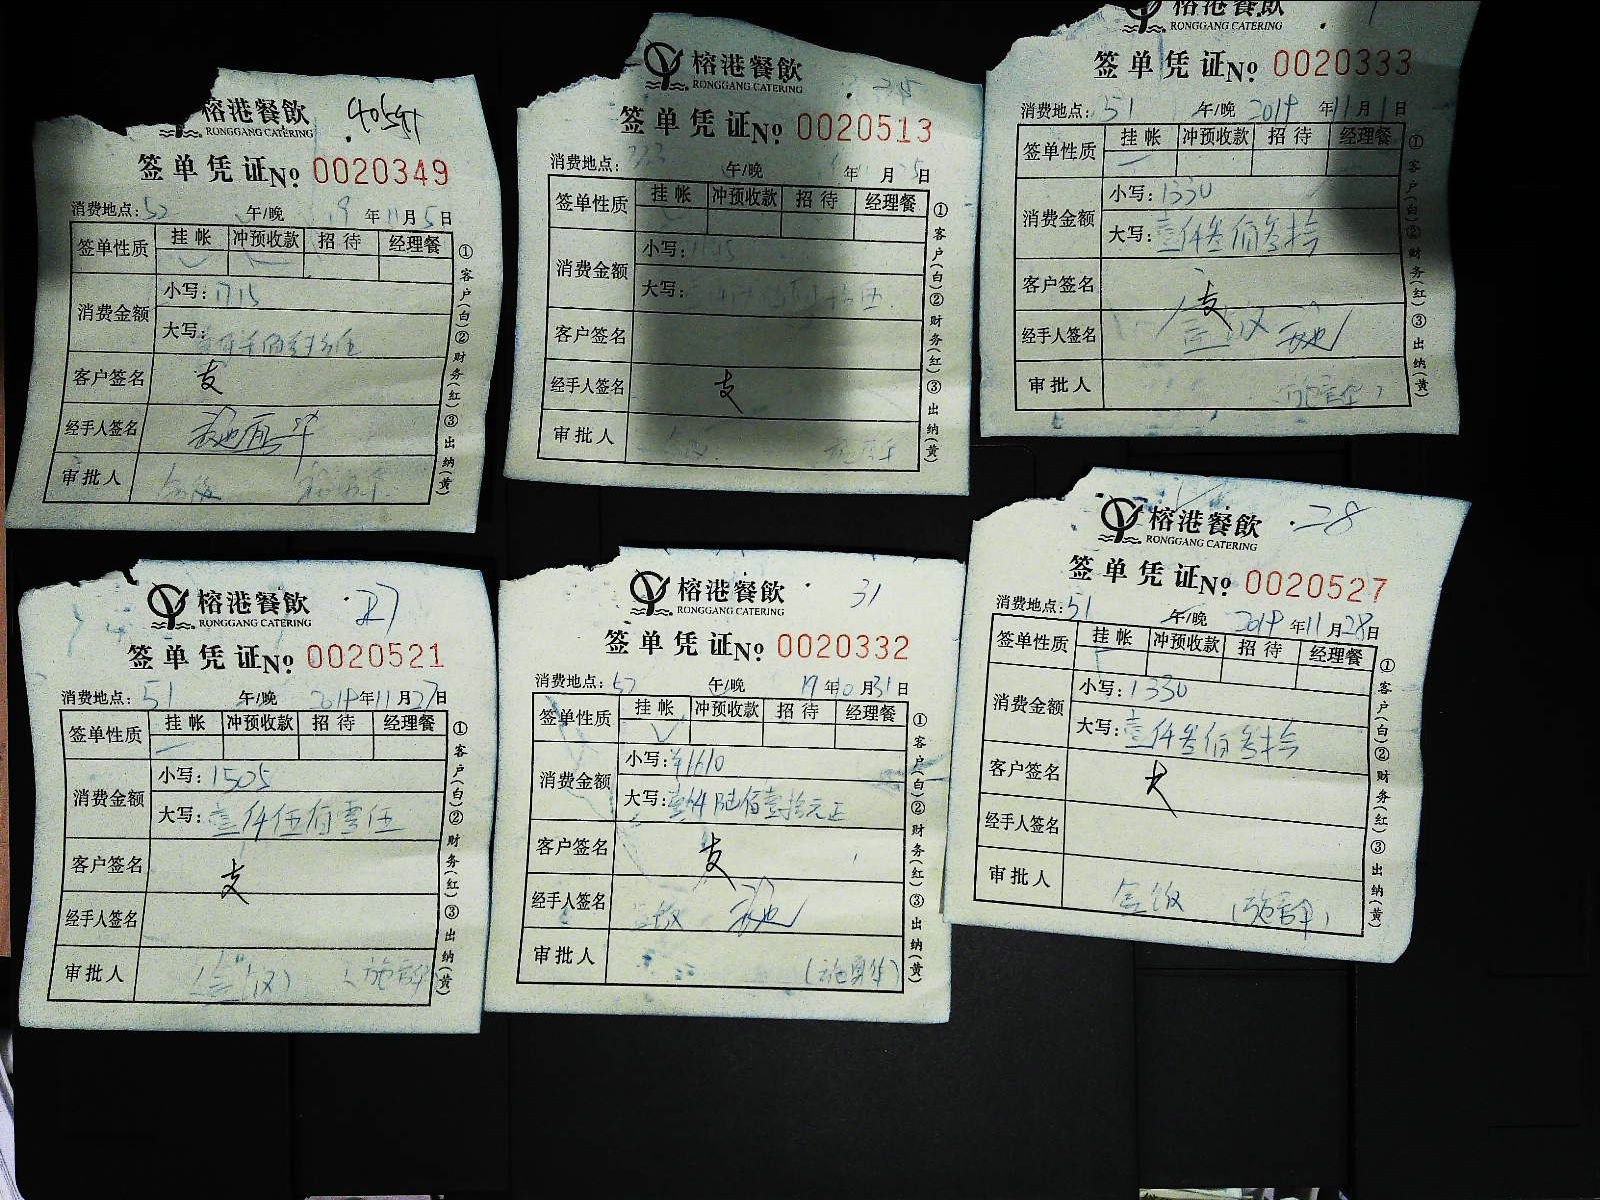 榕港餐飲
RONGGANG CATERING
签单凭证 No. 0020349
消费地点: 52 午/晚 19年11月5日
签单性质 挂帐 冲预收款 招待 经理餐
消费金额 小写: 1715
大写:
客户签名 支
经手人签名
审批人
①客户(白)②财务(红)③出纳(黄)
榕港餐飲
RONGGANG CATERING
签单凭证 No. 0020513
消费地点: 午/晚 年 月25日
签单性质 挂帐 冲预收款 招待 经理餐
消费金额 小写:
大写:
客户签名
经手人签名 支
审批人
①客户(白)②财务(红)③出纳(黄)
榕港餐飲
RONGGANG CATERING
签单凭证 No. 0020333
消费地点: 51 午/晚 2019年11月1日
签单性质 挂帐 冲预收款 招待 经理餐
消费金额 小写: 1330
大写: 壹仟叁佰叁拾
客户签名 支
经手人签名
审批人
①客户(白)②财务(红)③出纳(黄)
榕港餐飲 27
RONGGANG CATERING
签单凭证 No. 0020521
消费地点: 51 午/晚 2019年11月27日
签单性质 挂帐 冲预收款 招待 经理餐
消费金额 小写: 1505
大写: 壹仟伍佰零伍
客户签名 支
经手人签名
审批人
①客户(白)②财务(红)③出纳(黄)
榕港餐飲 31
RONGGANG CATERING
签单凭证 No. 0020332
消费地点: 52 午/晚 19年10月31日
签单性质 挂帐 冲预收款 招待 经理餐
消费金额 小写: ¥1610
大写: 壹仟陆佰壹拾元正
客户签名 支
经手人签名
审批人
①客户(白)②财务(红)③出纳(黄)
榕港餐飲 28
RONGGANG CATERING
签单凭证 No. 0020527
消费地点: 51 午/晚 2019年11月28日
签单性质 挂帐 冲预收款 招待 经理餐
消费金额 小写: 1330
大写: 壹仟叁佰叁拾
客户签名
经手人签名
审批人
①客户(白)②财务(红)③出纳(黄)